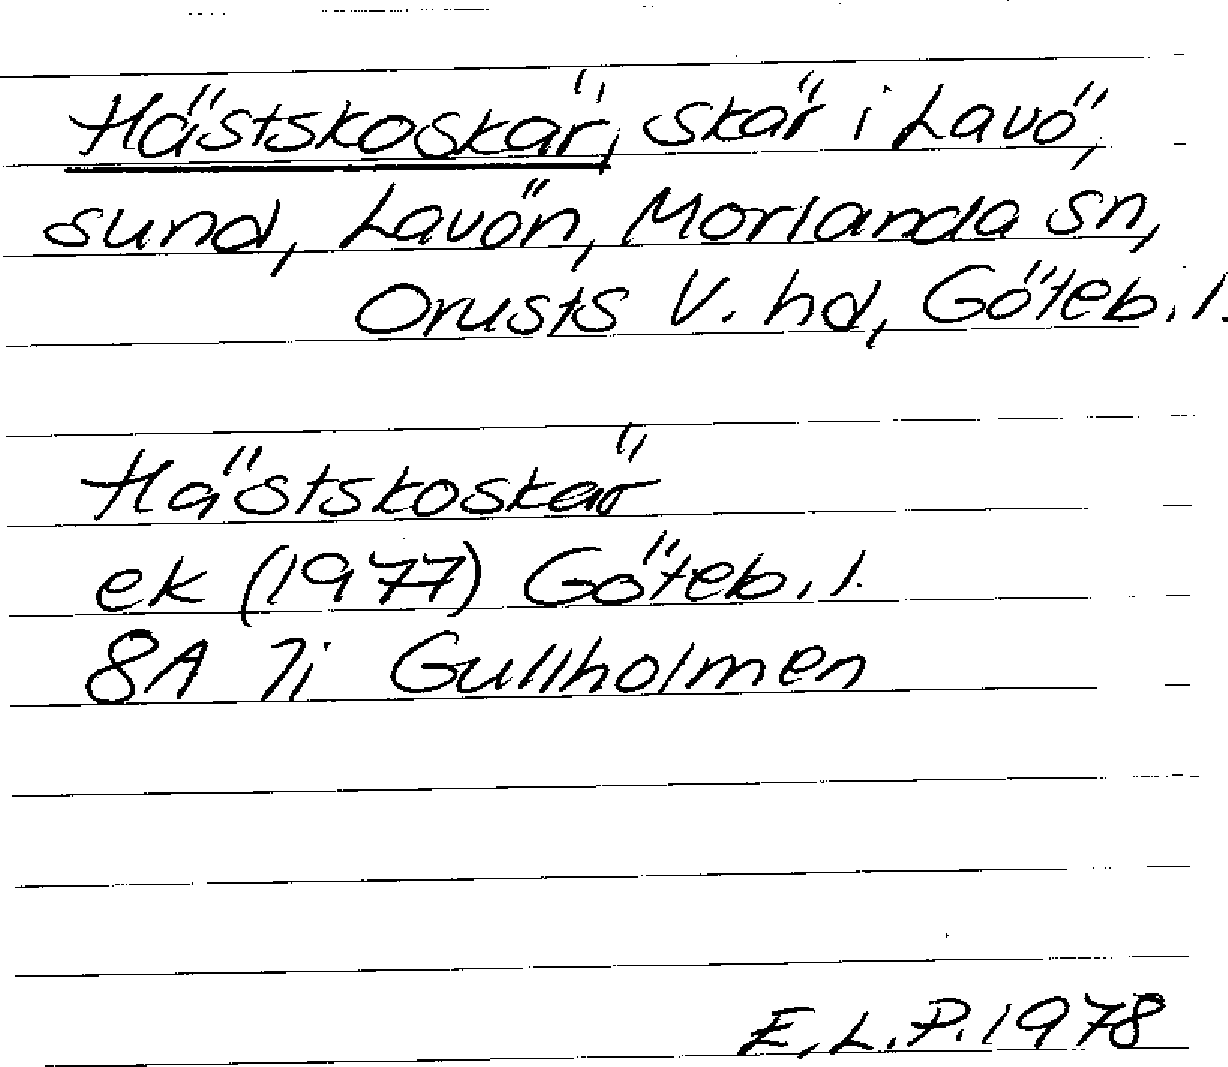 Hästskoskär, skär i Lavö,
sund, Lavön, Morlanda sn,
Orusts V. hd, Göteb. l.
Hästskoskär
ek (1977) Göteb. l.
8A 7i Gullholmen
E. L. P. 1978